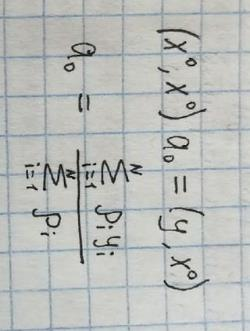 (x⁰, x⁰) a₀ = (y, x⁰)
a₀ = \frac{\sum_{i=1}^{N} p_i y_i}{\sum_{i=1}^{N} p_i}